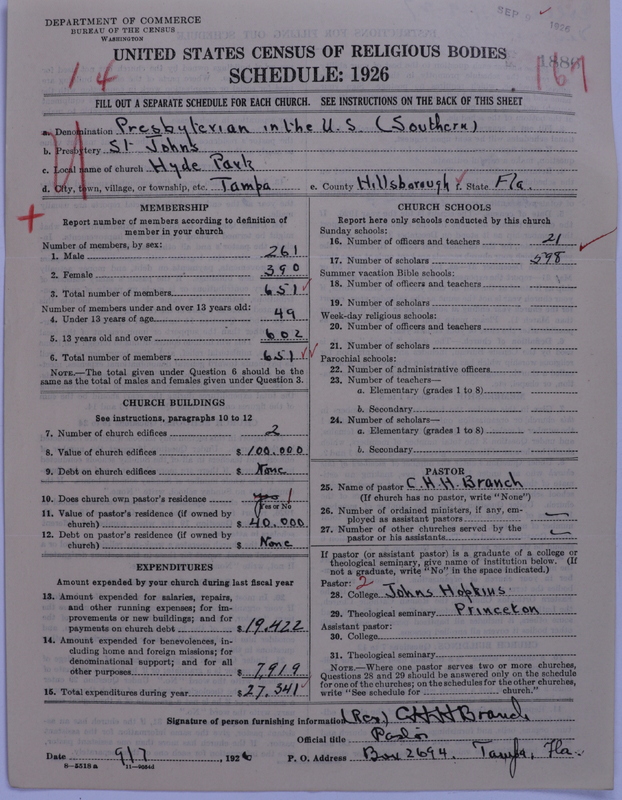 DEPARTMENT OF COMMERCE
BUREAU OF THE CENSUS
WASHINGTON
SEP 1926
UNITED STATES CENSUS OF RELIGIOUS BODIES
SCHEDULE: 1926
14
167
FILL OUT A SEPARATE SCHEDULE FOR EACH CHURCH. SEE INSTRUCTIONS ON THE BACK OF THIS SHEET
a. Denomination Presbyterian in the U.S. (Southern)
b. Presbytery St Johns
c. Local name of church Hyde Park
d. City, town, village, or township, etc. Tampa e. County Hillsborough f. State Fla.
MEMBERSHIP
Report number of members according to definition of
member in your church
Number of members, by sex:
1. Male 261
2. Female 390
3. Total number of members 651
Number of members under and over 13 years old:
4. Under 13 years of age 49
5. 13 years old and over 602
6. Total number of members 651
NOTE.—The total given under Question 6 should be the
same as the total of males and females given under Question 3.
CHURCH BUILDINGS
See instructions, paragraphs 10 to 12
7. Number of church edifices 2
8. Value of church edifices $ 100.000
9. Debt on church edifices $ None
10. Does church own pastor's residence yes 1
Yes or No
11. Value of pastor's residence (if owned by
church) $ 40.000
12. Debt on pastor's residence (if owned by
church) $ None
EXPENDITURES
Amount expended by your church during last fiscal year
13. Amount expended for salaries, repairs,
and other running expenses; for im-
provements or new buildings; and for
payments on church debt $ 19.422
14. Amount expended for benevolences, in-
cluding home and foreign missions; for
denominational support; and for all
other purposes $ 7,919
15. Total expenditures during year $ 27.341
CHURCH SCHOOLS
Report here only schools conducted by this church
Sunday schools:
16. Number of officers and teachers 21
17. Number of scholars 598
Summer vacation Bible schools:
18. Number of officers and teachers
19. Number of scholars
Week-day religious schools:
20. Number of officers and teachers
21. Number of scholars
Parochial schools:
22. Number of administrative officers
23. Number of teachers—
a. Elementary (grades 1 to 8)
b. Secondary
24. Number of scholars—
a. Elementary (grades 1 to 8)
b. Secondary
PASTOR
25. Name of pastor C.H.H. Branch
(If church has no pastor, write "None")
26. Number of ordained ministers, if any, em-
ployed as assistant pastors
27. Number of other churches served by the
pastor or his assistants
If pastor (or assistant pastor) is a graduate of a college or
theological seminary, give name of institution below. (If
not a graduate, write "No" in the space indicated.)
Pastor: 2
28. College Johns Hopkins
29. Theological seminary Princeton
Assistant pastor:
30. College
31. Theological seminary
NOTE.—Where one pastor serves two or more churches,
Questions 28 and 29 should be answered only on the schedule
for one of the churches; on the schedules for the other churches,
write "See schedule for church."
Signature of person furnishing information (Rev) C.H.H. Branch
Official title Pastor
Date 9/7, 1926 P. O. Address Box 2694, Tampa, Fla.
8-5518a 11-9554d